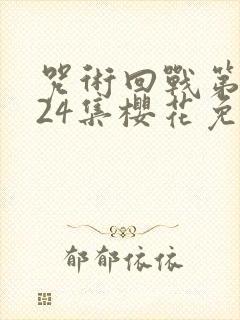 咒術回戰第
24集櫻花免
郁郁依依